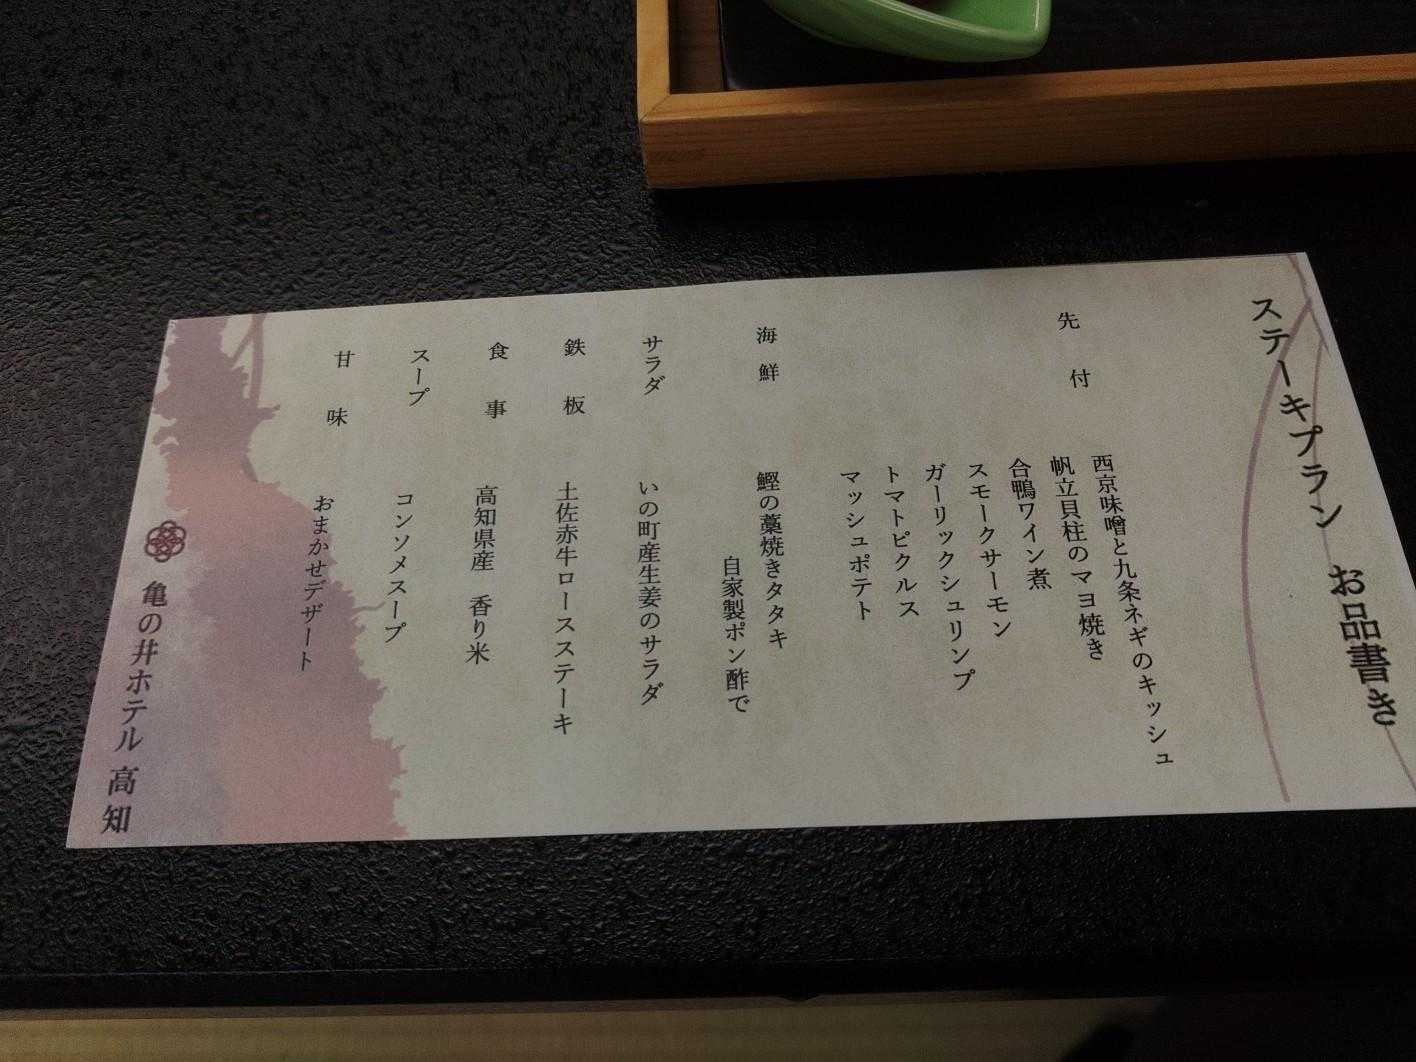 ステーキプラン お品書き
先付
西京味噌と九条ネギのキッシュ
帆立貝柱のマヨ焼き
合鴨ワイン煮
スモークサーモン
ガーリックシュリンプ
トマトピクルス
マッシュポテト
海鮮
鰹の藁焼きタタキ
自家製ポン酢で
サラダ
いの町産生姜のサラダ
鉄板
土佐赤牛ロースステーキ
食事
高知県産 香り米
スープ
コンソメスープ
甘味
おまかせデザート
亀の井ホテル 高知